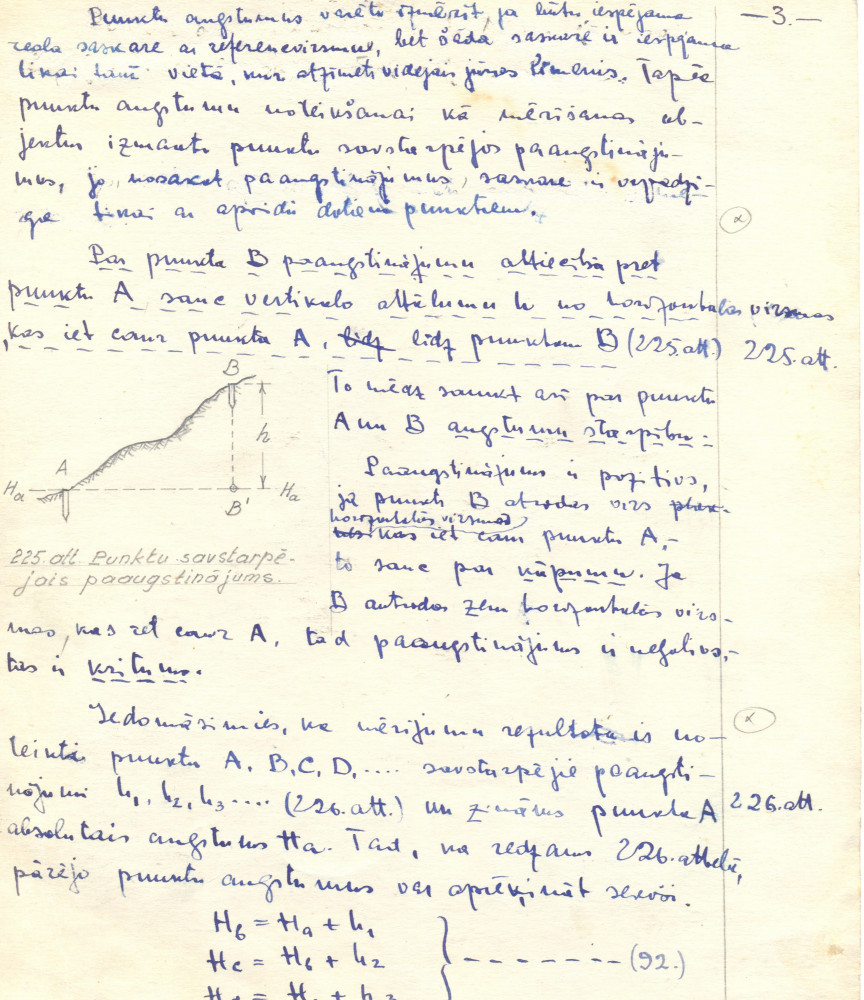 —3.—
Punktu augstumus varētu izmērīt, ja būtu iespējama
reāla saskare ar references virsmu, bet šāda saskare ir iespējama
tikai tanī vietā, kur atzīmēts vidējais jūras līmenis. Tāpēc
punktu augstumu noteikšanai kā mērīšanas ob-
jektus izmanto punktu savstarpējos paaugstināju-
mus, jo, nosakot paaugstinājumus, saskare ir vajadzī-
ga tikai ar apvidū dotiem punktiem.
α
Par punkta B paaugstinājumu attiecībā pret
punktu A sauc vertikālo attālumu h no horizontālas virsmas
kas iet caur punktu A, lidz līdz punktam B (225.att.)
225.att.
B
A
h
Ha
Ha
B'
225.att. Punktu savstarpē-
jais paaugstinājums.
To mēdz saukt arī par punktu
A un B augstumu starpību.
Paaugstinājums ir pozitīvs,
ja punkts B atrodas virs
horizontālās virsmas
kas iet caur punktu A,-
to sauc par kāpumu. Ja
B atrodas zem horizontālās virs-
mas, kas iet caur A, tad paaugstinājums ir negatīvs,-
tas ir kritums.
α
Iedomāsimies, ka mērījumu rezultātā ir no-
teikti punktu A, B, C, D, .... savstarpējie paaugsti-
nājumi h1, h2, h3 .... (226.att.) un zināms punkta A
226.att.
absolūtais augstums Ha. Tad, kā redzams 226.attēlā,
pārējo punktu augstumus var aprēķināt sekoši.
Hb = Ha + h1
Hc = Hb + h2
- - - - - - - (92.)